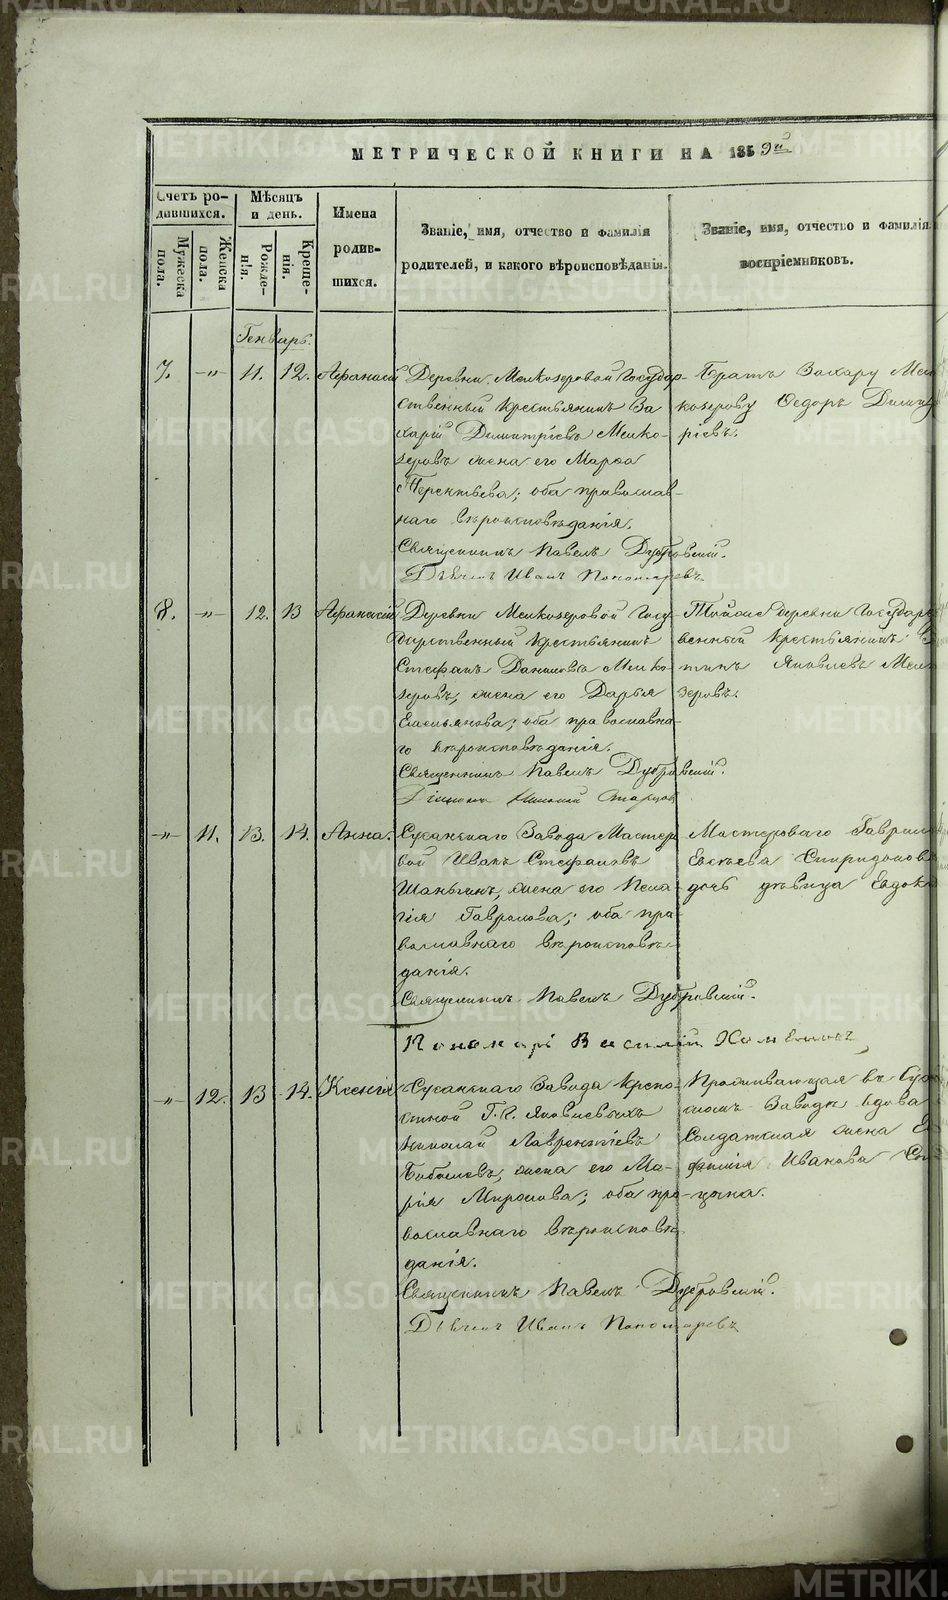 МЕТРИЧЕСКОЙ КНИГИ НА 1859й
Счетъ ро-
дившихся.
Мужеска пола.
Женска пола.
Мѣсяцъ
и день.
Рожде-
нія.
Креще-
нія.
Имена
родив-
шихся.
Званіе, имя, отчество и фамилія
родителей, и какого вѣроисповѣданія.
Званіе, имя, отчество и фамилія
воспріемниковъ.
Генварь.
7. -"- 11. 12. Афанасій
Деревни Мелкозеровой Государ-
ственный крестьянинъ За
харій Димитріевъ Мелко-
зеровъ жена его Марѳа
Терентьева; оба православ-
наго вѣроисповѣданія.
Священникъ Павелъ Дубровскій.
Дьячекъ Иванъ Пономаревъ
Братъ Захару Мел
козерову Ѳедоръ Димит
ріевъ.
8. -"- 12. 13 Афанасій
Деревни Мелкозеровой Госу-
дарственный крестьянинъ
Стефанъ Даниловъ Мелко
зеровъ, жена его Дарья
Емельянова; оба православна-
го вѣроисповѣданія.
Священникъ Павелъ Дубровскій.
Тойже деревни Государст
венный крестьянинъ
тинъ Яковлевъ Мелко
зеровъ.
-"- 11. 13. 14. Анна.
Сусанскаго Завода Мастеро
вой Иванъ Стефановъ
Шаньгинъ, жена его Пела
гія Гаврилова; оба пра-
вославнаго вѣроисповѣ-
данія.
Священникъ Павелъ Дубровскій.
Пономарь Василій
Мастероваго Гаврила
Евсѣева Спиридонов
дочь дѣвица Евдок
-"- 12. 13 14. Ксенія
Сусанскаго Завода крѣпо-
стной Г.г. Яковлевыхъ
Николай Лаврентіевъ
Бабошевъ, жена его Ма-
рія Миронова; оба пра-
вославнаго вѣроисповѣ-
данія.
Священникъ Павелъ Дубровскій.
Дьячекъ Иванъ Пономаревъ
Проживающая въ Суса
скомъ Заводѣ вдова
Солдатская жена Е
фимія Иванова
цына.
METRIKI.GASO-URAL.RU